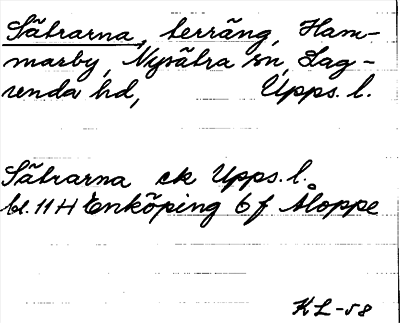 Sätrarna, terräng, Ham-
marby, Nysätra sn, Lag-
unda hd, Upps. l.
Sätrarna ek Upps. l.
bl. 11 H Enköping 6 f Åloppe
KL-58